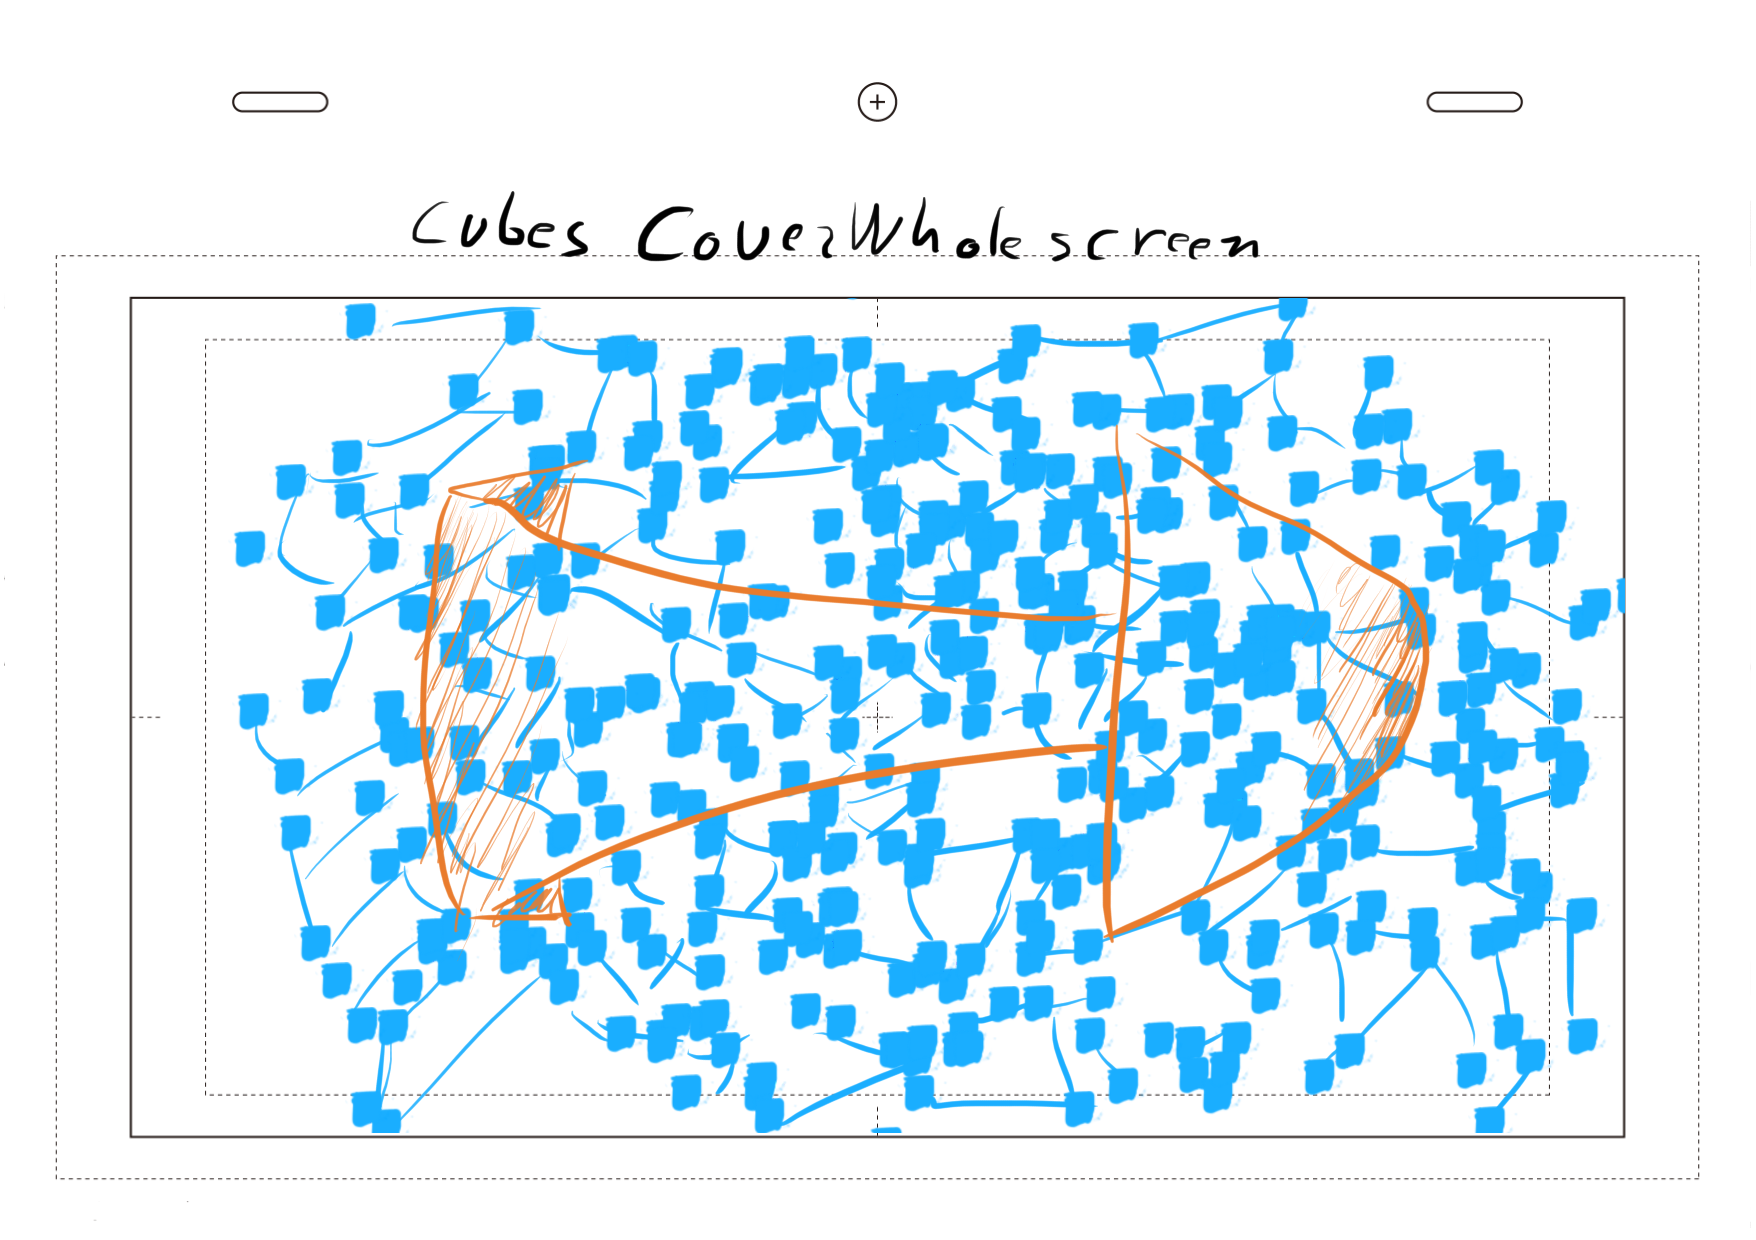 Cubes Cover Whole screen